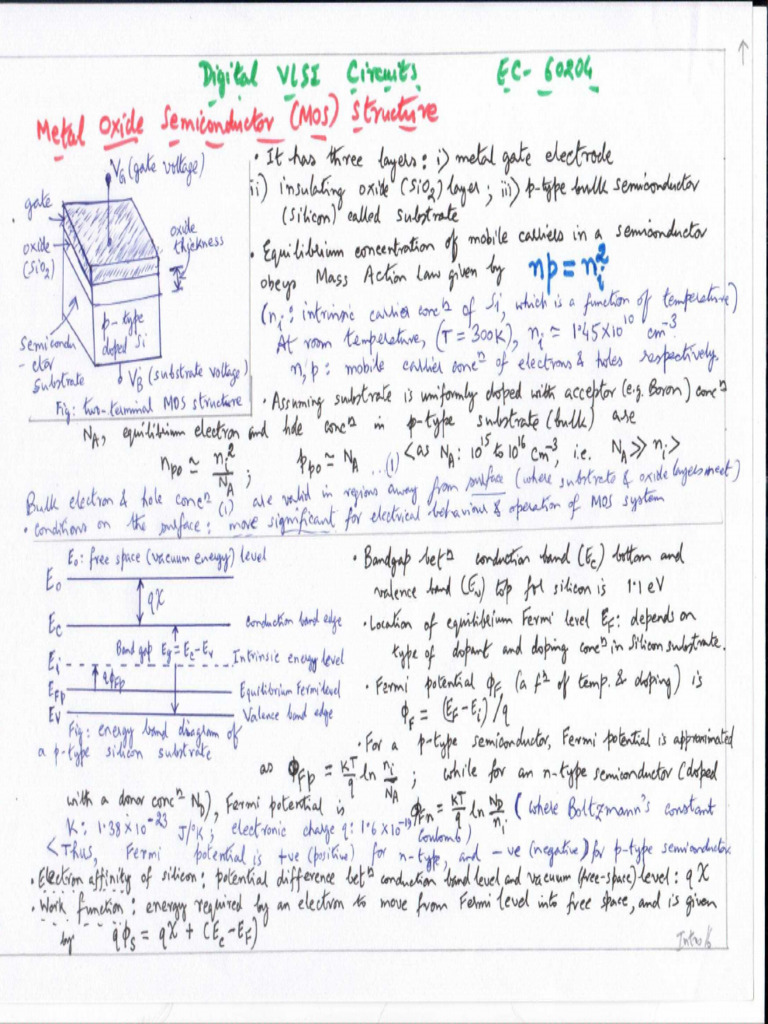 Digital VLSI Circuits EC-60204
Metal Oxide Semiconductor (MOS) Structure
VG (gate voltage)
gate
oxide
(SiO2)
oxide
thickness
Semicondu
-ctor
Substrate
p-type
doped Si
VB (substrate voltage)
Fig: two-terminal MOS structure
• It has three layers: i) metal gate electrode
ii) insulating oxide (SiO2) layer; iii) p-type bulk semiconductor
(silicon) called substrate
• Equilibrium concentration of mobile carriers in a semiconductor
obeys Mass Action Law given by np = ni²
(ni: intrinsic carrier concⁿ of Si, which is a function of temperature)
At room temperature, (T = 300K), ni ≃ 1.45×10¹⁰ cm⁻³
n, p: mobile carrier concⁿ of electrons & holes respectively.
• Assuming substrate is uniformly doped with acceptor (e.g. Boron) concⁿ
NA, equilibrium electron and hole concⁿ in p-type substrate (bulk) are
npo ≃ ni²/NA ; ppo ≃ NA ...(1) <as NA: 10¹⁵ to 10¹⁶ cm⁻³, i.e. NA >> ni>
Bulk electron & hole concⁿ (1) are valid in regions away from surface (where substrate & oxide layers meet)
• conditions on the surface: more significant for electrical behaviour & operation of MOS system
E0: free space (vacuum energy) level
E0
qχ
Ec Conduction band edge
Band gap Eg = Ec-Ev
Ei Intrinsic energy level
qϕFp
EFp Equilibrium Fermi level
Ev Valence band edge
Fig: energy band diagram of
a p-type silicon substrate
• Bandgap betⁿ conduction band (Ec) bottom and
valence band (Ev) top for silicon is 1.1 eV
• Location of equilibrium Fermi level EF: depends on
type of dopant and doping concⁿ in Silicon substrate.
• Fermi potential ϕF (a fⁿ of temp. & doping) is
ϕF = (EF-Ei)/q
• For a p-type semiconductor, Fermi potential is approximated
as ϕFp = kT/q ln ni/NA ; while for an n-type semiconductor (doped
with a donor concⁿ ND), Fermi potential is ϕFn = kT/q ln ND/ni (where Boltzmann's constant
K: 1.38×10⁻²³ J/°K; electronic charge q: 1.6×10⁻¹⁹ Coulomb)
<Thus, Fermi potential is +ve (positive) for n-type, and -ve (negative) for p-type semiconductor
• Electron affinity of silicon: potential difference betⁿ conduction band level and vacuum (free-space) level: qχ
• Work function: energy required by an electron to move from Fermi level into free space, and is given
by qϕs = qχ + (Ec-EF)